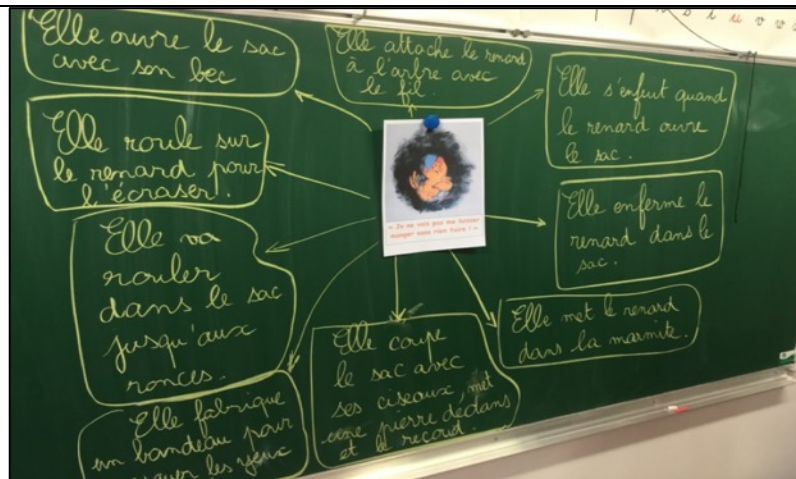 Elle ouvre le sac
avec son bec
Elle attache le renard
à l'arbre avec
le fil.
Elle s'enfuit quand
le renard ouvre
le sac.
Elle roule sur
le renard pour
l'écraser.
« Je ne vais pas me laisser
manger sans rien faire ! »
Elle enferme le
renard dans le
sac.
Elle va
rouler
dans le sac
jusqu'aux
ronces.
Elle met le renard
dans la marmite.
Elle coupe
le sac avec
ses ciseaux, met
une pierre dedans
et le recoud.
Elle fabrique
un bandeau pour
les yeux